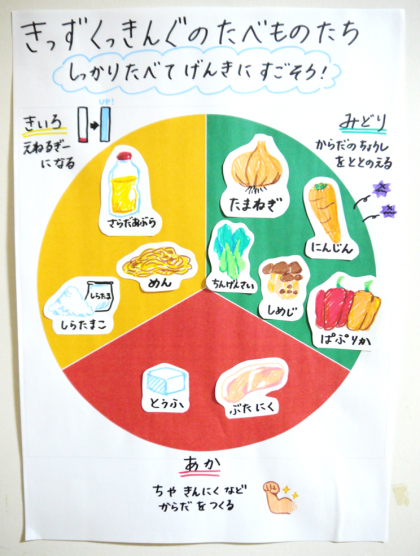 きっずくっきんぐのたべものたち
しっかりたべて げんきに すごそう！
きいろ
UP!
えねるぎー
になる
みどり
からだのちょうし
をととのえる
さらだあぶら
たまねぎ
にんじん
めん
ちんげんさい
しらたま
しらたまこ
しめじ
ぱぷりか
とうふ
ぶたにく
あか
ちや きんにく など
からだ をつくる